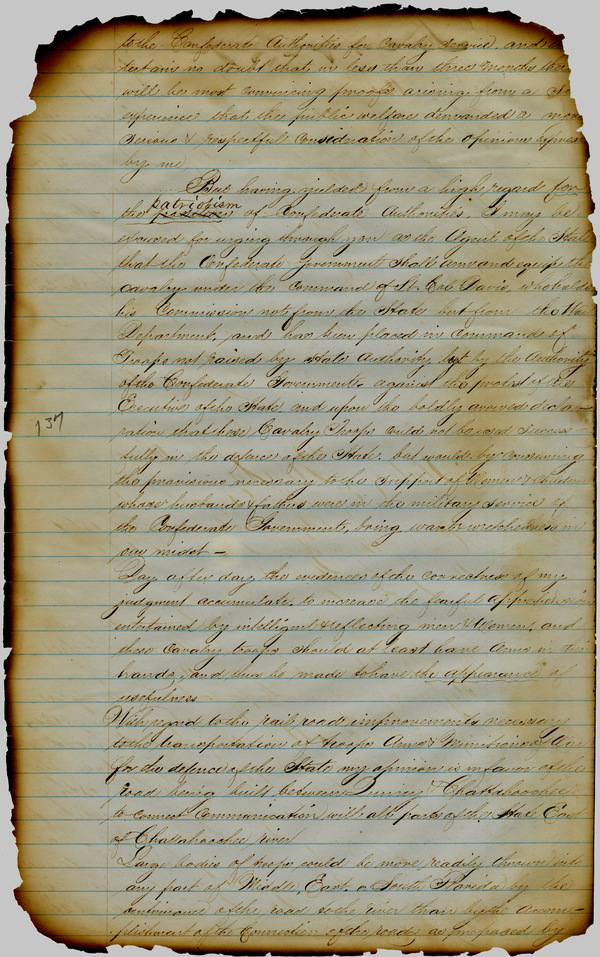 to the Confederate Authorities for Cavalry Service, and
tertain no doubt that in less than three months there
will be most convincing proofs arising from a
experience that the public welfare demanded a more
serious & respectful consideration of the opinions
by me
But having yielded from a high regard for
the patriotism of Confederate Authorities, I may be
excused for urging through you as the Agent of the State
that the Confederate Government shall arm and equip the
cavalry under the Command of Davis, who holds
his Commission not from the State but from the War
Department, and has been placed in command of
Troops not raised by State Authority but by the Authority
of the Confederate Government, against the protest of the
Executive of the State and upon the boldly avowed decla-
ration that these Cavalry Troops could not be used success
fully in the defence of the State, but would by consuming
the provisions necessary to the support of Women & children
whose husbands & fathers were in the military service of
the Confederate Government, bring want & wretchedness in
our midst —
Day after day the evidences of the correctness of my
judgment accumulate, to increase the fearful apprehensions
entertained by intelligent & reflecting men & Women, and
these Cavalry troops should at least have Arms in their
hands, and thus be made to have the appearance of
usefulness
With regard to the rail road improvements necessary
to the transportation of troops Arms & Munitions &c
for the defence of the State my opinion is in favor of the
road being built between Quincy & Chattahoochee
to connect Communication with all parts of the State East
of Chattahoochee river
Large bodies of troops could be more readily thrown into
any part of Middle, East, or South Florida by the
continuance of the road to the river than by the accom-
plishment of the Connection of the roads, as proposed by
137